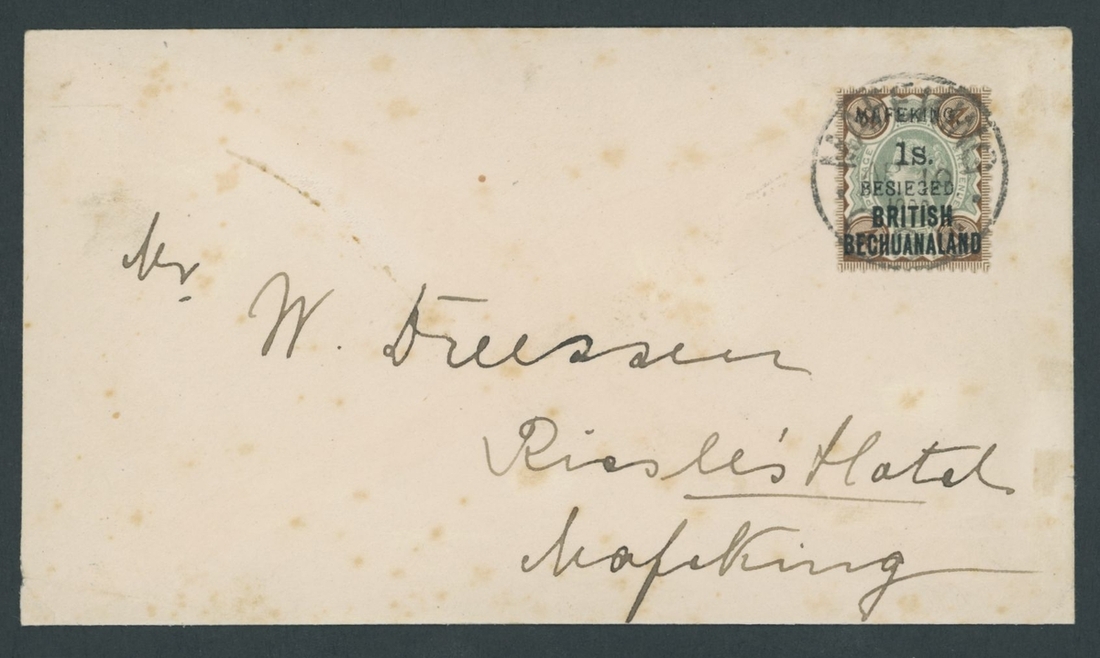 MAFEKING,
1s.
BESIEGED.
BRITISH
BECHUANALAND
MAFEKING
Mr
W. Dreessen
Riesle's Hotel
Mafeking